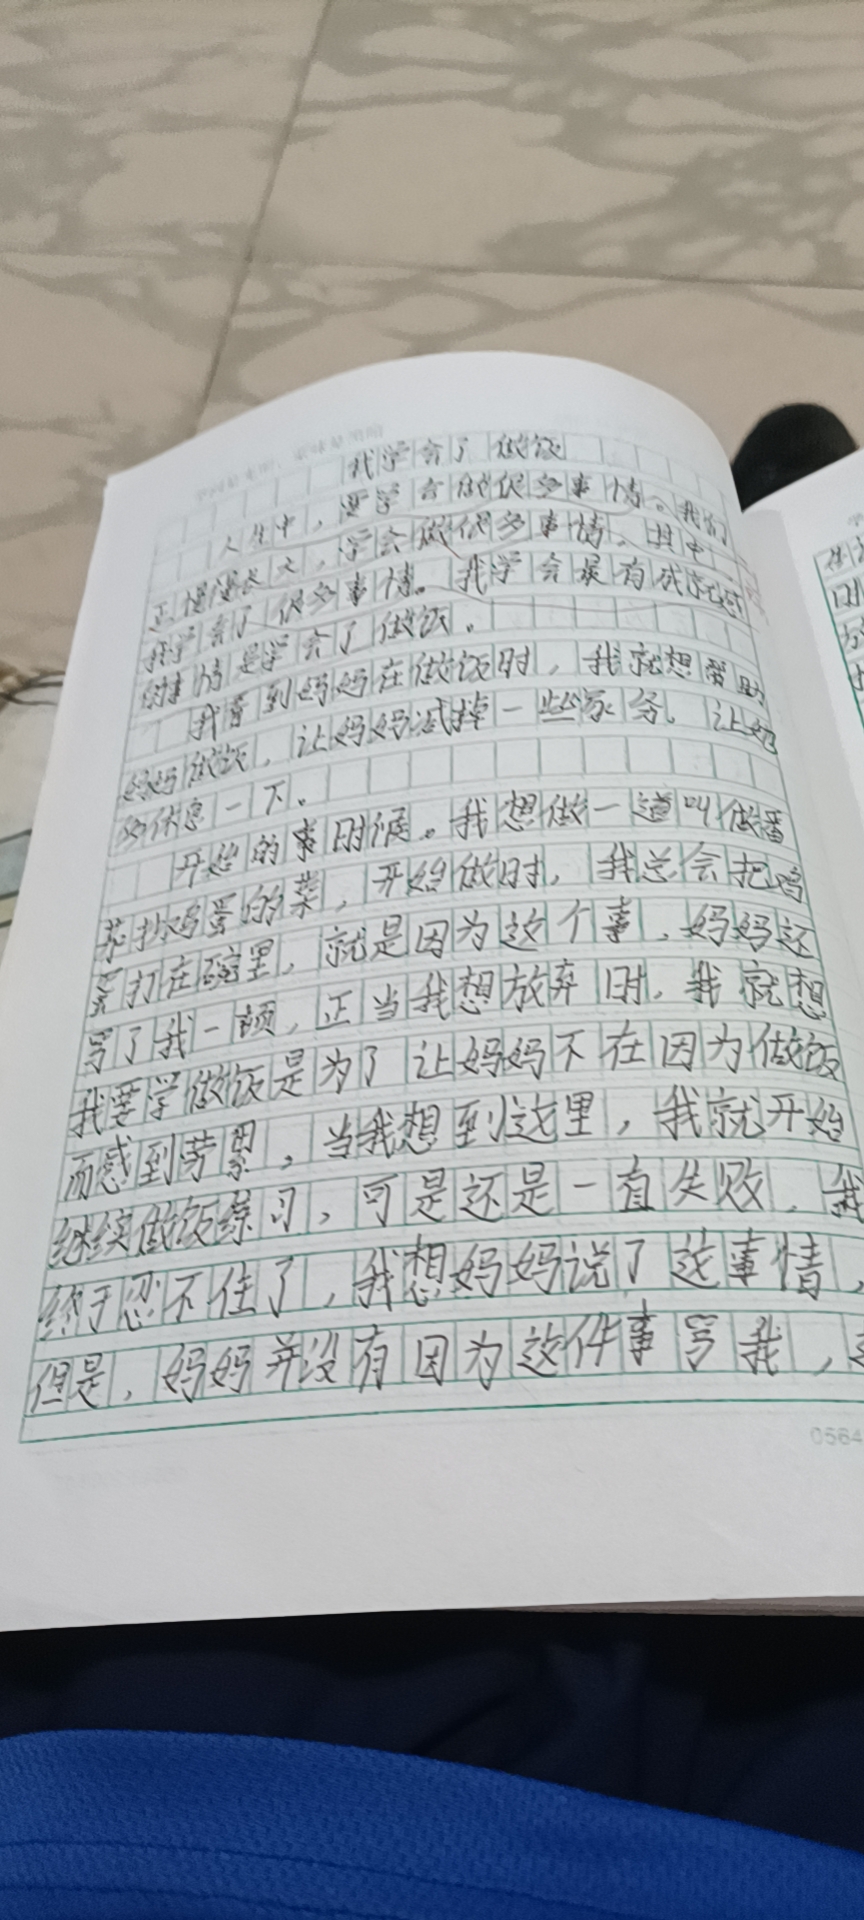 我学会了做饭
人生中，要学会做很多事情。我们
正慢慢长大，学会做很多事情。其中，
我学会了很多事情。我学会最有成就感
的事情是学会了做饭。
我看到妈妈在做饭时，我就想帮助
妈妈做饭，让妈妈减掉一些家务。让妈
妈休息一下。
开始的事时候。我想做一道叫做番
茄抄鸡蛋的菜，开始做时，我总会把鸡
蛋打在碗里，就是因为这个事，妈妈还
骂了我一顿，正当我想放弃时，我就想
我要学做饭是为了让妈妈不在因为做饭
而感到劳累，当我想到这里，我就开始
继续做饭练习，可是还是一直失败，我
终于忍不住了，我想妈妈说了这事情，
但是，妈妈并没有因为这件事骂我，
0564